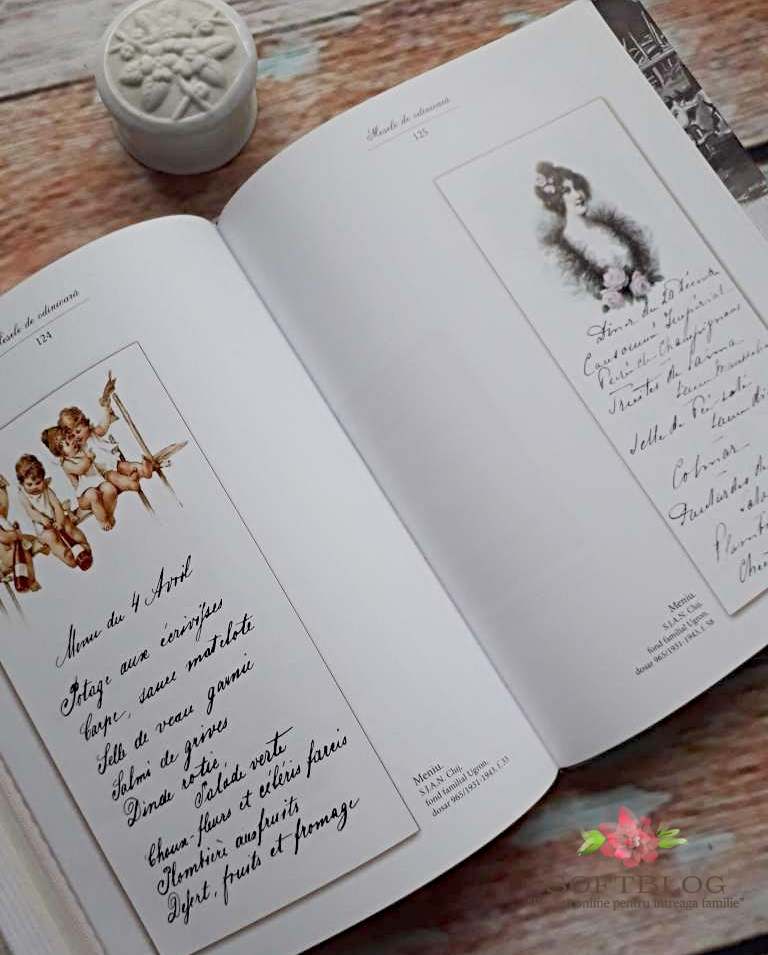 esele de odinioară
124
Menu du 4 Avril
Potage aux écrivisses
Carpe, sauce matelote
Selle de veau garnie
Salmi de grives
Dinde rotie
Salade verte
Choux-fleurs et céléris farcis
Plombière aux fruits
Desert, fruits et fromage
Meniu.
S.J.A.N. Cluj,
fond familial Ugron,
dosar 965/1931-1943, f. 33
Mesele de odinioară
125
Diner du 20
Consommé Impérial
de Champignons
Truites de
Selle de Pré-salé
Colmar
Meniu.
S.J.A.N. Cluj,
fond familial Ugron,
dosar 965/1931-1943, f. 58
SOFTBLOG
online pentru intreaga familie"